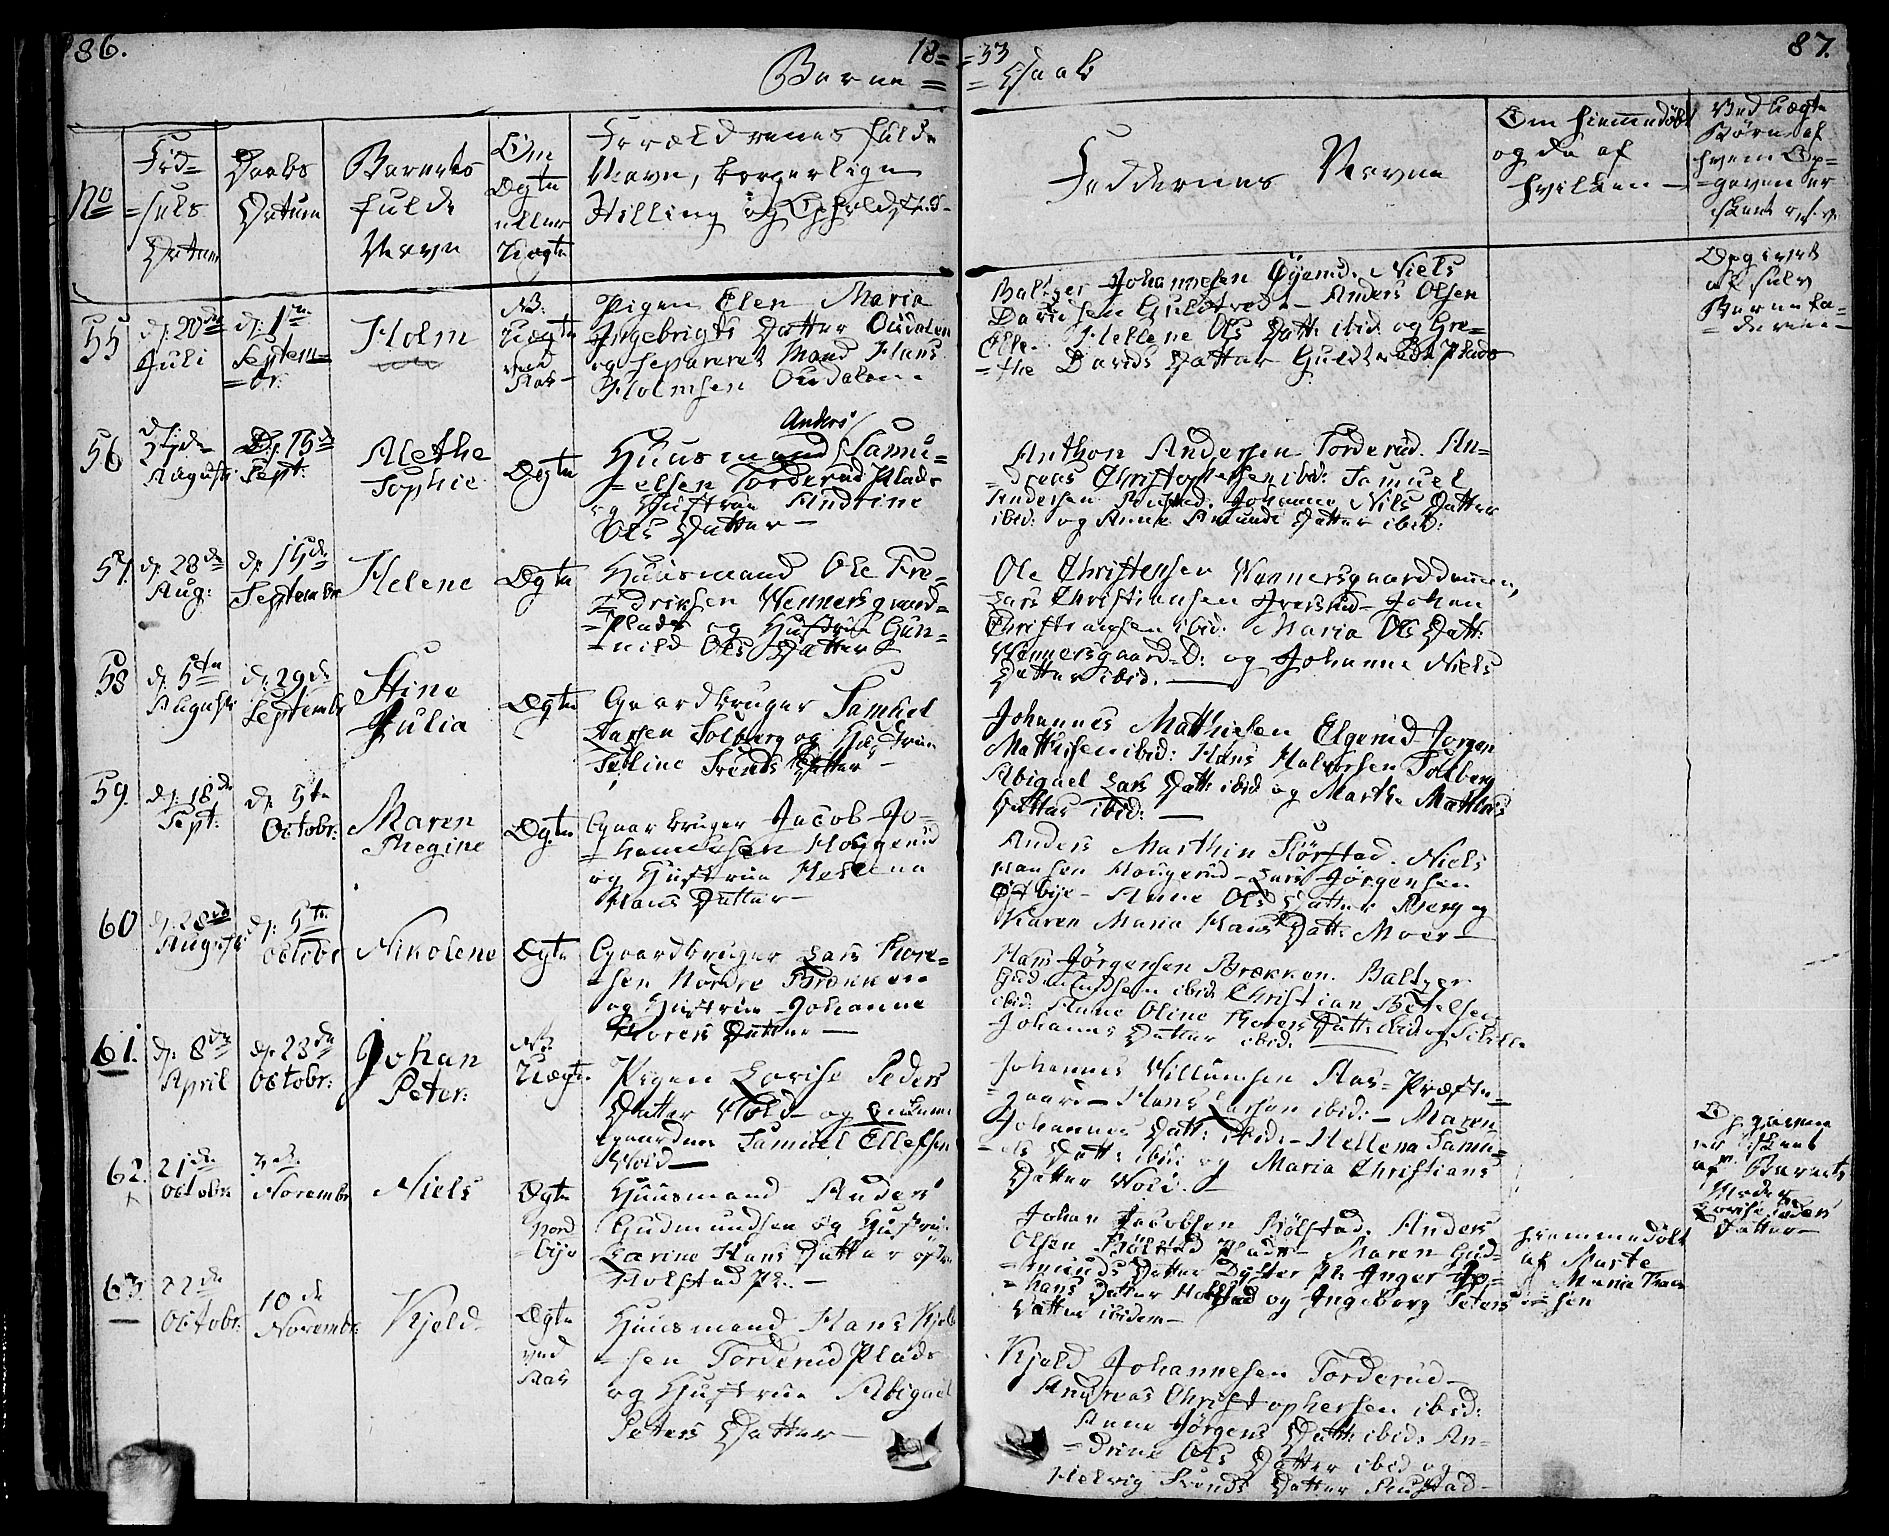 86.
18=
=33
87.
Barne=
=Daab
No
Fød=
=sels
Datum
Daabs
Datum
Barnets
fulde
Navn
Om
Ægte
eller
Uægte
Forældrenes fulde
Navn, borgerlige
Stilling og Opholdsted
Faddernes Navne
Om hiemmedøbt
og da af
hvilken
Ved Uægte
Børn af
hvem Op=
=gaven er
skeet
55
d. 20de
Juli
d. 1ste
Septem=
=br.
Holm
NB.
Uægte
ved
Aas
Pigen Elen Maria
Ingebrigts Datter Oudalen
og separeret Mand Hans
Holmsen Oudalen.
Baltzer Johannesen Niels
Davidsen Anders Olsen
Hellene Ols Datt: ibid. og Gre=
=the Davids Datter Plads
Opgivet
af selv
Barnefa=
=deren
56
August
d. 15de
Sept:
Alethe
Sophie
Ægte
Anders
Huusmand Samu=
=elsen Torderud Plads
og Hustrue Andrine
Ols Datter
Anthon Andersen Torderud. An=
=dreas Christophersen ibid: Samuel
Andersen Johanne Nils Datter
ibid: og Anne Amunds Datter ibid:
57.
d. 28de
Aug:
d. 15de
September
Helene
Ægte
Huusmand Ole Fre=
=driksen Wennersgaard=
=Plads og Hustrue Gun=
=nild Ols Datter
Ole Christensen Wennersgaard
Lars Christiansen Johan
Christiansen ibid: Maria Ols Datt:
Wennersgaard og Johanne Niels
Datter ibid.
58
d. 5te
August
d. 29de
Septembr
Stine
Julia
Ægte
Gaardbruger Samuel
Larsen Solberg og Hustrue
Svends Datter
Johannes Mathisen Elgerud Jørgen
Mathisen ibid: Hans Halvorsen Solberg
Abigael Lars Datt: ibid og Marthe Mathis
Datter ibid:
59.
d. 18de
Sept:
d. 5te
Octobr:
Maren
Regine
Ægte
Gaardbruger Jacob Jo=
=hannesen Hougerud
og Hustrue Hellena
Hans Datter
Anders Marthin Niels
Hansen Hougerud Lars Jørgensen
Østbye Anne Ols Datter Berg og
Karen Maria Hans Datt: Moer
60
d. 28de
August
d. 5te
Octobr
Nikolene
Ægte
Gaardbruger Lars Thore=
=sen Nordre Brækken
og Hustrue Johanne
Thores Datter
Hans Jørgensen Brækken. Baltzer
Gudmundsen ibid. Christian
ibid: Anne Oline Thores Datt: ibid og Sibille
Johannes Datter ibid.
61.
d. 8de
April
d. 23de
Octobr:
Johan
Peter:
NB.
Uægte
Pigen Lovise Peders
Datter Wold og
Samuel Ellefsen
Wold
Johannes Willumsen Aas=Præste=
=gaard Hans Larsen ibid: Maren
Johannes Datt: ibid: Hellena Samu=
=els Datt: ibid: og Maria Christians
Datter Wold.
Opgiven
er skeet
af Barnets
Moder
Lovise Peders
Datter
62.
21de
Octobr
3die
Novembr
Niels
Ægte
Nord
=bye
Huusmand Anders
Gudmundsen og Hustrue
Karine Hans Datter
Holstad Pl.
Johan Jacobsen Bølstad. Anders
Olsen Bølstad Plads Maren Gud=
=munds Datter Dyster Pl. Inger Jo=
=hans Datter Holstad og Ingeborg Peters
Datter ibidem
hiemmedøbt
af Marte
Maria
63
22de
Octobr:
10de
Novembr:
Kjeld
Ægte
ved
Aas
Huusmand Hans Kjeld
=sen Torderud Plads
og Hustrue Abigael
Peters Datter
Kjeld Johannesen Torderud
Andreas Christophersen ibid:
Anne Jørgens Datt: ibid. An=
=drine Ols Datter ibid og
Helvig Svends Datter Rustad